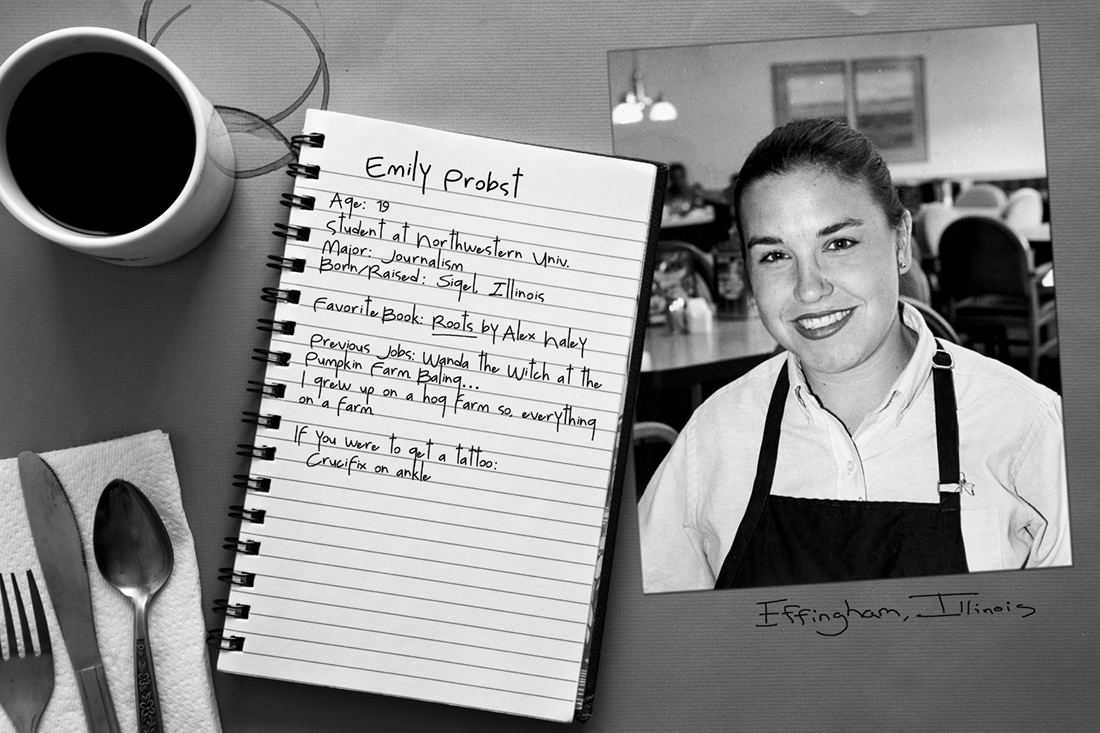 Emily Probst
Age: 19
Student at Northwestern Univ.
Major: Journalism
Born/Raised: Sigel, Illinois
Favorite Book: Roots by Alex Haley
Previous Jobs: Wanda the Witch at the
Pumpkin Farm Baling...
I grew up on a hog farm so, everything
on a farm
If you were to get a tattoo:
Crucifix on ankle
Effingham, Illinois